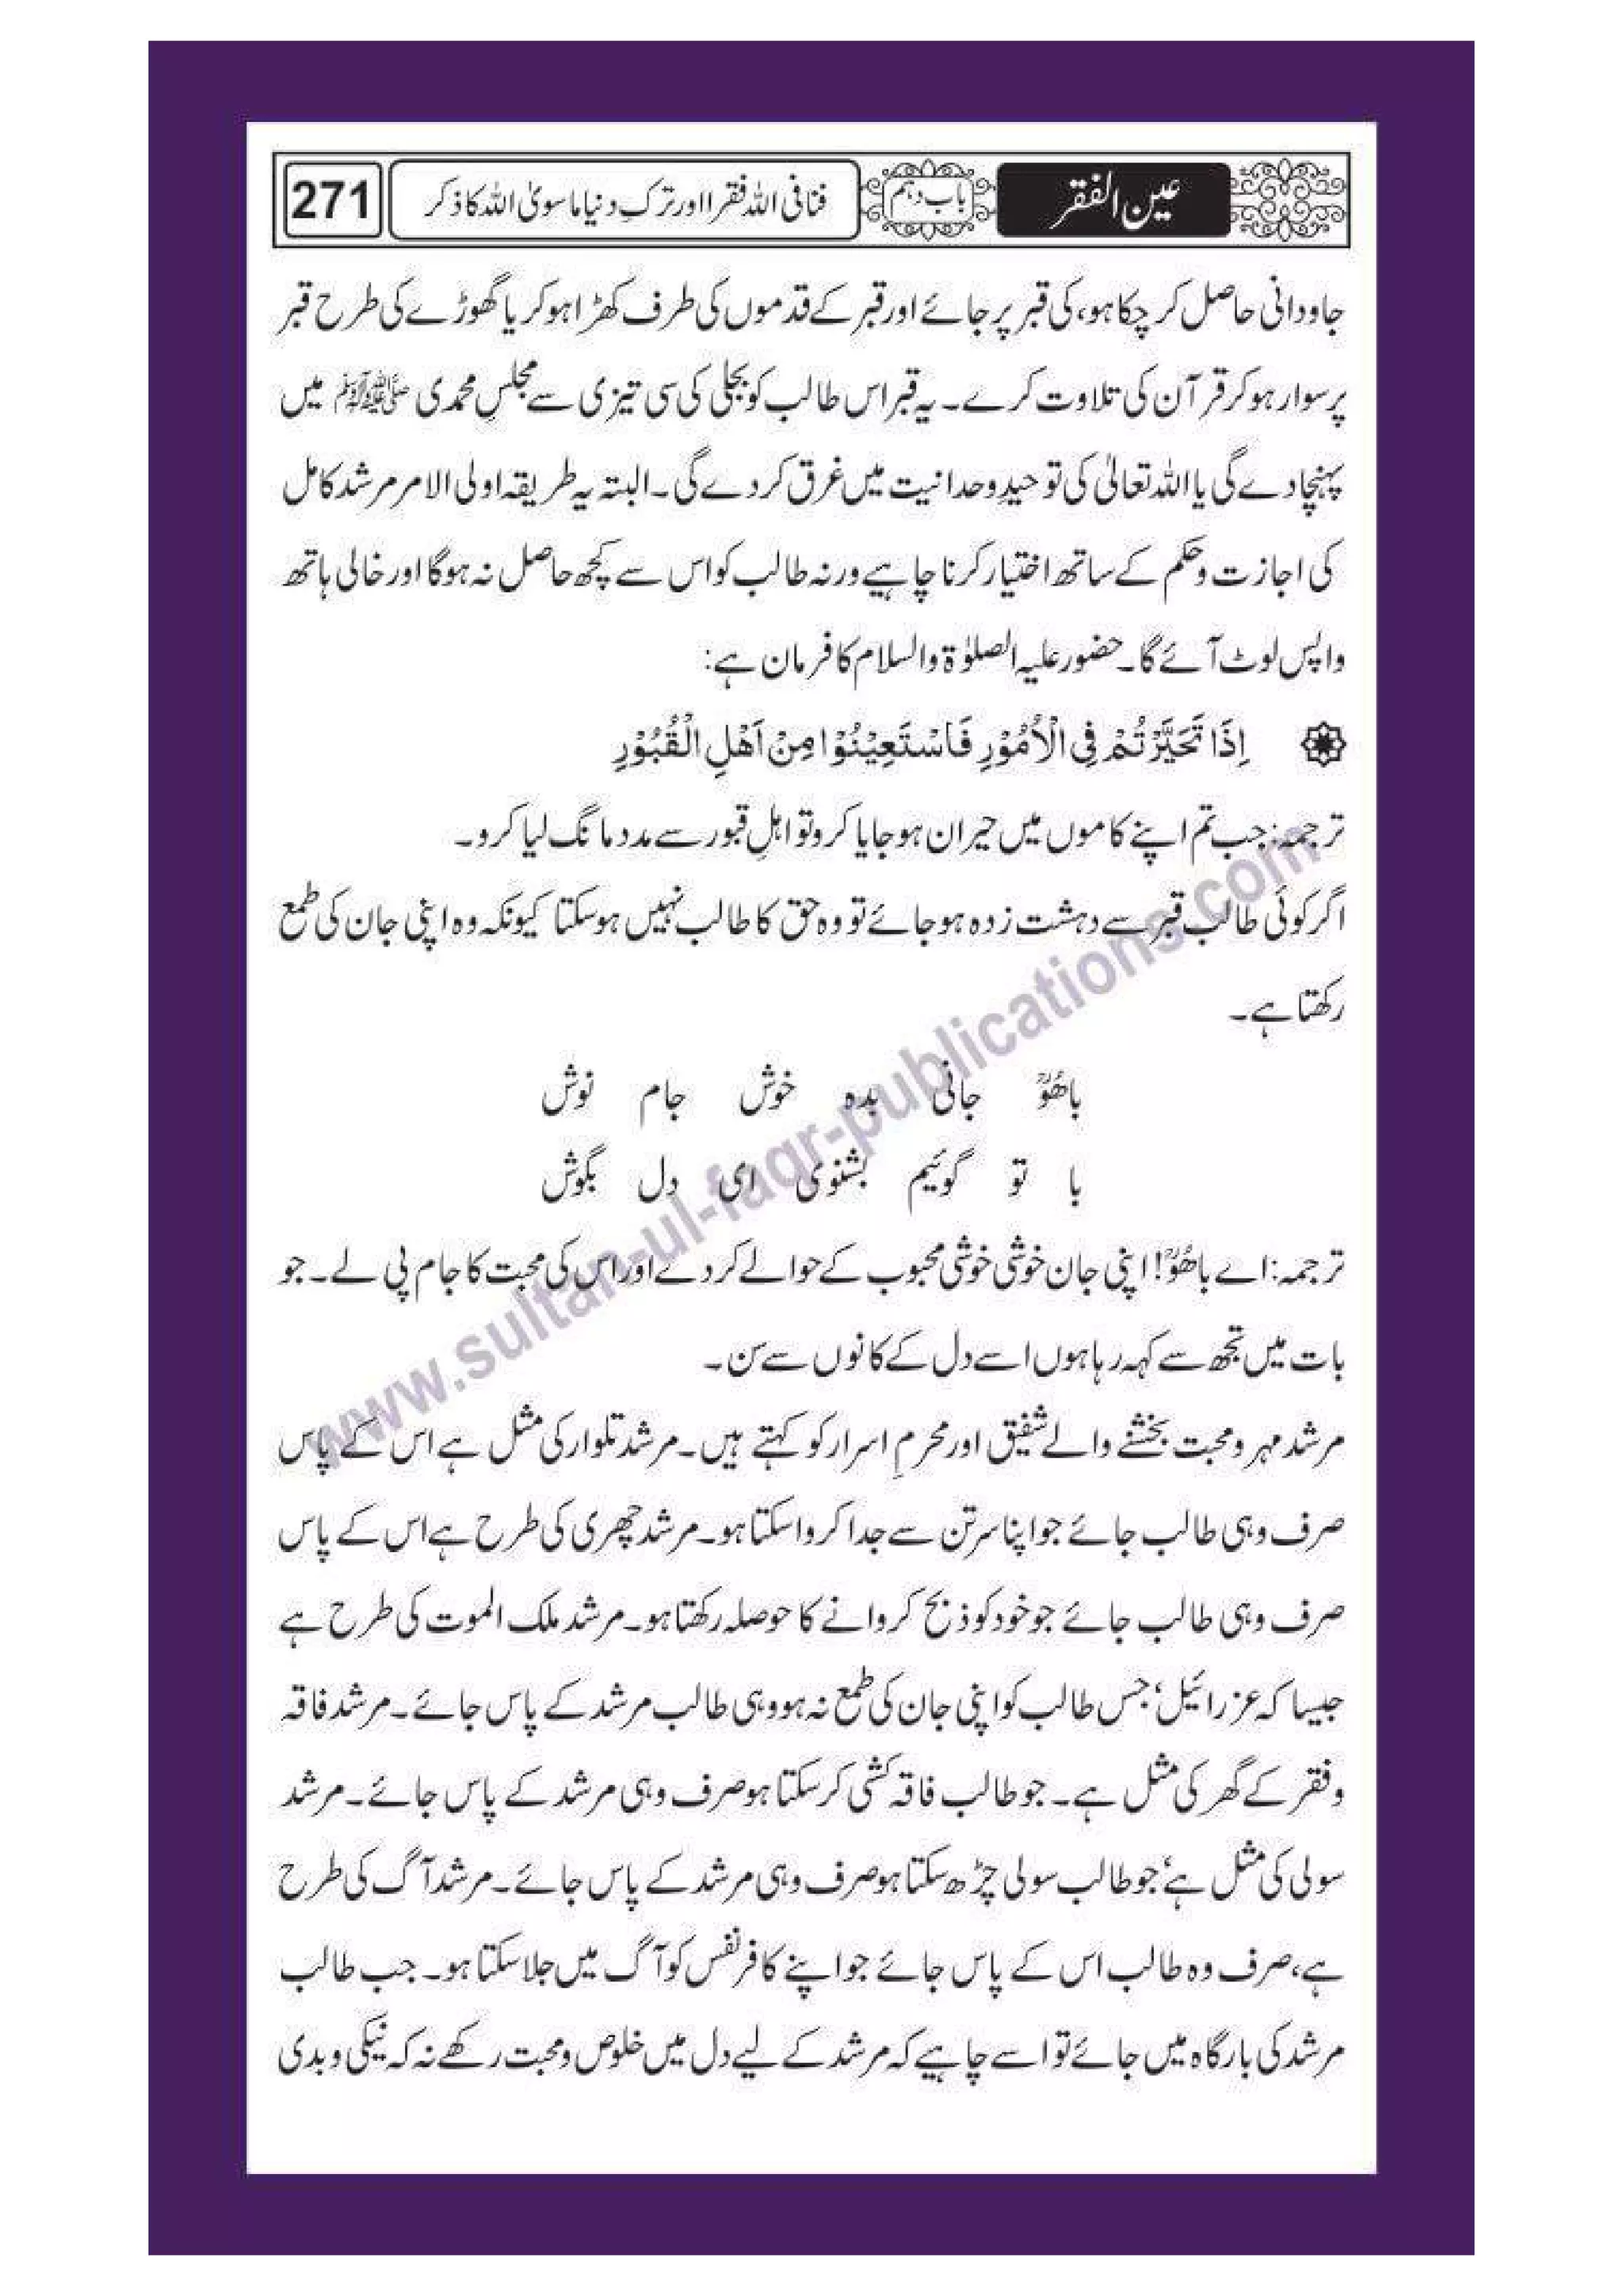 عین الفقر باب دہم فنا فی اللہ فقرا اور ترکِ دنیا ما سویٰ اللہ کا ذکر 271
جاودانی حاصل کر چکا ہو، کی قبر پر جائے اور قبر کے قدموں کی طرف کھڑا ہو کر یا گھوڑے کی طرح قبر
پر سوار ہو کر قرآن کی تلاوت کرے۔ یہ قبر اس طالب کو بجلی کی سی تیزی سے مجلسِ محمدی ﷺ میں
پہنچا دے گی یا اللہ تعالیٰ کی توحیدِ وحدانیت میں غرق کر دے گی۔ البتہ یہ طریقہ اولی الامر مرشد کامل
کی اجازت و حکم کے ساتھ اختیار کرنا چاہیے ورنہ طالب کو اس سے کچھ حاصل نہ ہوگا اور خالی ہاتھ
واپس لوٹ آئے گا۔ حضور علیہ الصلوٰۃ والسلام کا فرمان ہے:
اِذَا تَحَيَّرْتُمْ فِی الْاُمُوْرِ فَاسْتَعِيْنُوْا مِنْ اَهْلِ الْقُبُوْرِ
ترجمہ: جب تم اپنے کاموں میں حیران ہو جایا کرو تو اہلِ قبور سے مدد مانگ لیا کرو۔
اگر کوئی طالب قبر سے دہشت زدہ ہو جائے تو وہ حق کا طالب نہیں ہو سکتا کیونکہ وہ اپنی جان کی طمع
رکھتا ہے۔
باھُوؒ جانی بدہ خوش جام نوش
با تو گوئیم بشنوی ای دل بگوش
ترجمہ: اے باھُوؒ! اپنی جان خوشی خوشی محبوب کے حوالے کر دے اور اس کی محبت کا جام پی لے۔ جو
بات میں تجھ سے کہہ رہا ہوں اسے دل کے کانوں سے سن۔
مرشد مہر و محبت بخشنے والے شفیق اور محرمِ اسرار کو کہتے ہیں۔ مرشد تلوار کی مثل ہے اس کے پاس
صرف وہی طالب جائے جو اپنا سر تن سے جدا کروا سکتا ہو۔ مرشد چھری کی طرح ہے اس کے پاس
صرف وہی طالب جائے جو خود کو ذبح کروانے کا حوصلہ رکھتا ہو۔ مرشد ملک الموت کی طرح ہے
جیسا کہ عزرائیل، جس طالب کو اپنی جان کی طمع نہ ہو وہی طالب مرشد کے پاس جائے۔ مرشد فاقہ
و فقر کے گھر کی مثل ہے۔ جو طالب فاقہ کشی کر سکتا ہو صرف وہی مرشد کے پاس جائے۔ مرشد
سولی کی مثل ہے، جو طالب سولی چڑھ سکتا ہو صرف وہی مرشد کے پاس جائے۔ مرشد آگ کی طرح
ہے، صرف وہ طالب اس کے پاس جائے جو اپنے کافر نفس کو آگ میں جلا سکتا ہو۔ جب طالب
مرشد کی بارگاہ میں جائے تو اسے چاہیے کہ مرشد کے لیے دل میں خلوص و محبت رکھے نہ کہ نیکی و بدی
www.sultan-ul-faqr-publications.com